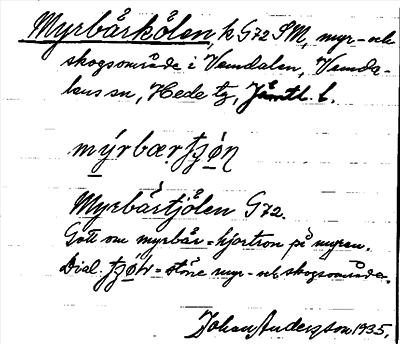 Myrbårkölen, k G72 SM, myr- och
skogsområde i Vemdalen, Vemda-
lens sn, Hede tg, Jämtl. l.
mýrbær
Myrbårtjölen G72.
Gott om myrbår = hjortron på myren.
Dial. = större myr- och skogsområde.
Johan Anderson 1935.